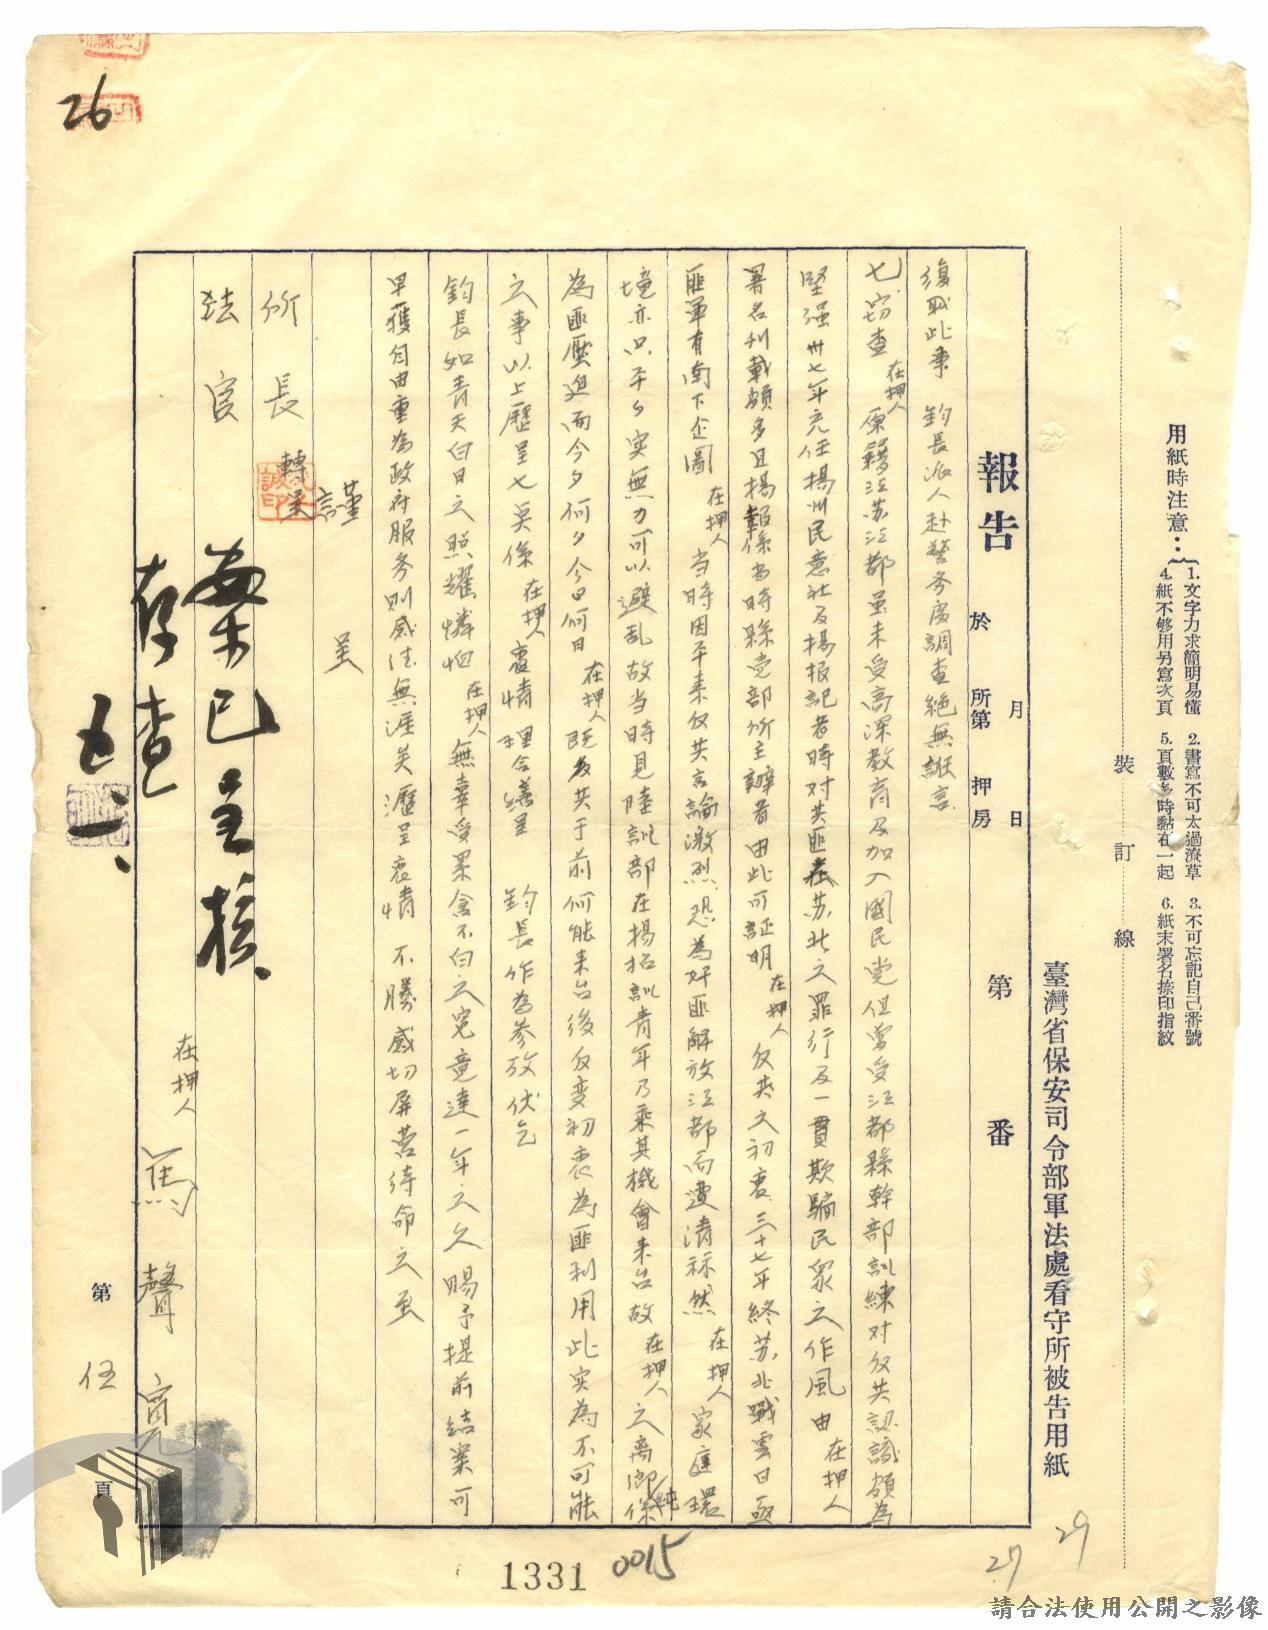 用紙時注意：
1.文字力求簡明易懂 2.書寫不可太過潦草 3.不可忘記自己番號
4.紙不够用另寫次頁 5.頁數多時黏在一起 6.紙末署名捺印指紋
裝訂線
臺灣省保安司令部軍法處看守所被告用紙
報告 於 月 日 所第 押房 第 番
復職此事 鈞長派人赴警务處調查絕無誑言
七.窃查在押人原籍江苏江都虽未受高深教育及加入國民党但曾受江都縣幹部訓練对反共認識頗為
堅强卅七年充任揚州民意社及揚报記者時对共匪在苏北之罪行及一貫欺騙民衆之作風由在押人
署名刊載頗多且揚報係当時縣党部所主辦者由此可証明在押人反共之初衷三十七年終苏北戰雲日亟
匪軍有南下企圖在押人当時因平素反共言論激烈恐為奸匪解放江都而遭清祘然在押人家庭環
境亦只平々实無力可以避乱故当時見陸訓部在揚招訓青年乃乘其機會来台故在押人之离鄉係純
為匪壓迫而今夕何夕今日何日在押人既反共于前何能来台後反变初衷為匪利用此实為不可能
之事以上歷呈七央係在押人衷情理合繕呈 鈞長作為参攷伏乞
鈞長如青天白日之照耀憐恤在押人無辜受累含不白之冤竟達一年之久賜予提前結案可
早獲自由重為政府服务則感法無涯矣瀝呈衷情 不勝感切屏营待命之至
謹
呈
所長 轉呈
法官
案已呈核
存查
在押人 馬聲寬
第 伍 頁
26
27
29
1331
0015
請合法使用公開之影像